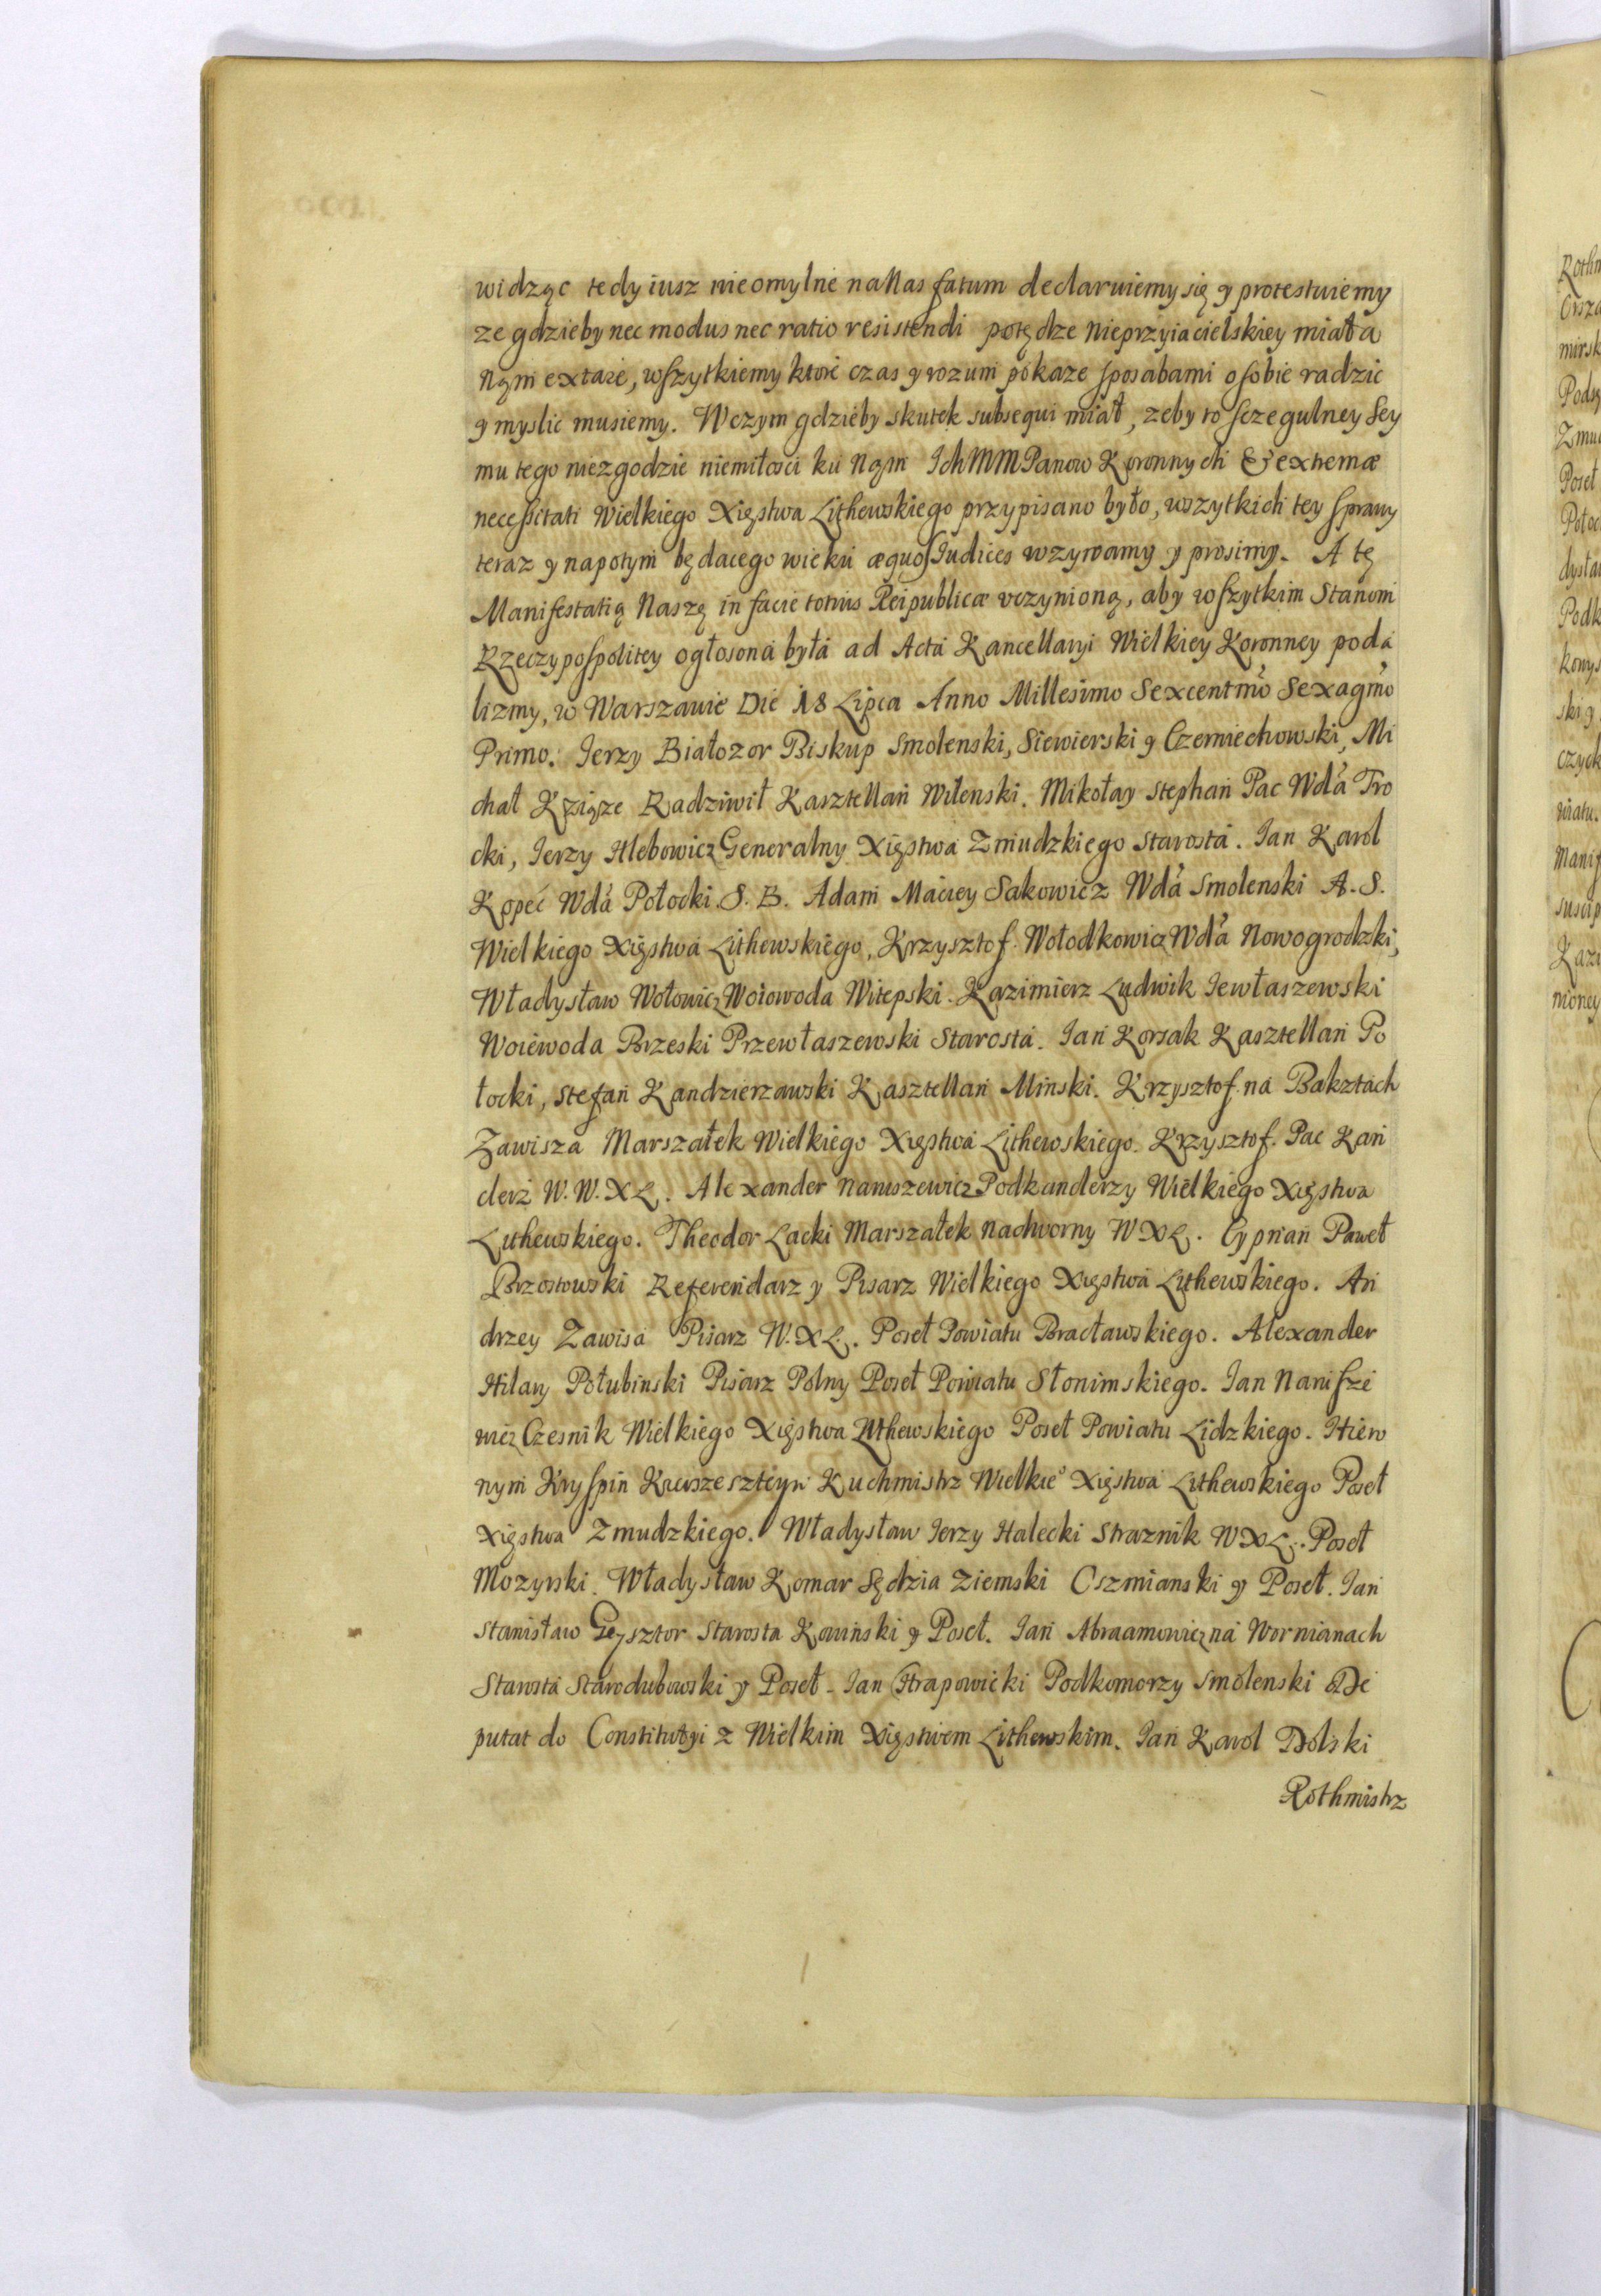 widząc tedy iusz nieomylnie na Nas fatum declaruiemy się y protestuiemy
ze gdzieby nec modus nec ratio resistendi potędze Nieprzyiacielskiey miała
Nąm extare, wszytkiemy ktore czas y rozum pokaze sposabami o sobie radzic
y myslic musiemy. W czym gdzieby skutek subsequi miał, zeby to sczegulney Sey
mu tego niezgodzie niemiłosci ku Nąm Ich MM Panow Koronnych & extremæ
necessitati Wielkiego Xięstwa Lithewskiego przypisano było, wszytkich tey sprawy
teraz y napotym będacego wieku æquos Iudices wzywamy y prosimy. A tę
Manifestatią Naszę in facie totius Reipublicæ vczynioną, aby wszytkim Stanom
Rzeczypospolitey ogłosona była ad Acta Kancellaryi Wielkiey Koronney poda
lizmy, w Warszawie Die 18 Lipca Anno Millesimo Sexcentmo Sexagmo
Primo. Jerzy Białozor Biskup Smolenski, Siewierski y Czerniechowski, Mi
chał Kziąze Radziwił Kasztellan Wilenski. Mikołay Stephan Pac Wda Tro
cki, Jerzy Hlebowicz Generalny Xięstwa Zmudzkiego Starosta. Jan Karol
Kopeć Wda Połocki. S. B. Adam Maciey Sakowicz Wda Smolenski A. S.
Wielkiego Xięstwa Lithewskiego, Krzysztof Wołodkowicz Wda Nowogrodzki,
Władysław Wołowicz Woiowoda Witepski. Kazimierz Ludwik Jewłaszewski
Woiewoda Brzeski Przewłaszewski Starosta. Jan Korsak Kasztellan Po
łocki, Stefan Kandzierzawski Kasztellan Minski. Krzysztof na Baksztach
Zawisza Marszałek Wielkiego Xięstwa Lithewskiego. Krzysztof Pac Kan
clerz W. W. X L. Alexander Naruszewicz Podkanclerzy Wielkiego Xięstwa
Lithewskiego. Theodor Lacki Marszałek Nadworny W X L. Cyprian Paweł
Brzostowski Referendarz y Pisarz Wielkiego Xięstwa Lithewskiego. An
drzey Zawisa Pisarz W. X L. Poseł Powiatu Bracławskiego. Alexander
Hilary Połubinski Pisarz Polny Poseł Powiatu Słonimskiego. Jan Narusze
wicz Czesnik Wielkiego Xięstwa Lithewskiego Poseł Powiatu Lidzkiego. Hiero
nym Kryspin Kirszeszteyn Kuchmistrz Wielkieo Xięstwa Lithewskiego Poseł
Xięstwa Zmudzkiego. Władysław Jerzy Halecki Straznik W X L. Poseł
Mozyrski. Władysław Komar Sędzia Ziemski Oszmianski y Poseł. Jan
Stanisław Geysztor Starosta Kowinski y Poseł. Jan Abraamowicz na Wornianach
Starosta Starodubowski y Poseł. Jan Hrapowicki Podkomorzy Smolenski De
putat do Constitutyi z Wielkim Xięstwem Lithewskim. Jan Karol Dolski
Rothmistrz